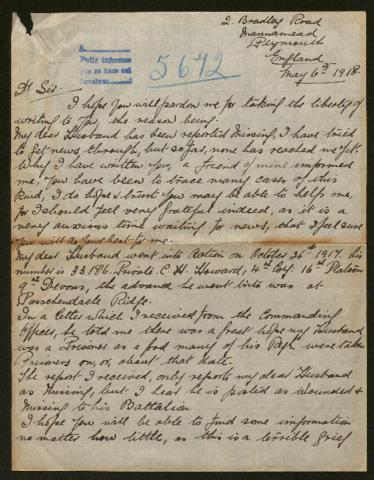 2. Bradley Road
Mannamead
Plymouth
England
May 6th 1918.
Pedir informes
que se hace así
5672
Dr Sir.
I hope you will pardon me for taking the liberty of
writing to you, the reason being.
My dear Husband has been reported Missing, I have tried
to get news through, but so far, none has reached me yet.
Why I have written you, a friend of mine informed
me, you have been to trace many cases of this
kind, I do hope & trust you may be able to help me,
for I should feel very grateful indeed, as it is a
very anxious time waiting for news, that I feel sure
you will do your best for me.
My dear Husband went into Action on October 26th 1917. his
number is 33186. Private. C. H. Howard, 4th Coy. 16th Platoon
9th Devons, the advance he went into was at
Passchendaele Ridge.
In a letter which I received from the Commanding
Officer, he told me there was a great hope my Husband
was a Prisoner as a good many of his Regt were taken
Prisoners on, or, about that date.
The report I received, only reports my dear Husband
as Missing, but I hear he is posted as wounded &
Missing to his Battalion
I hope you will be able to find some information
no matter how little, as this is a terrible grief